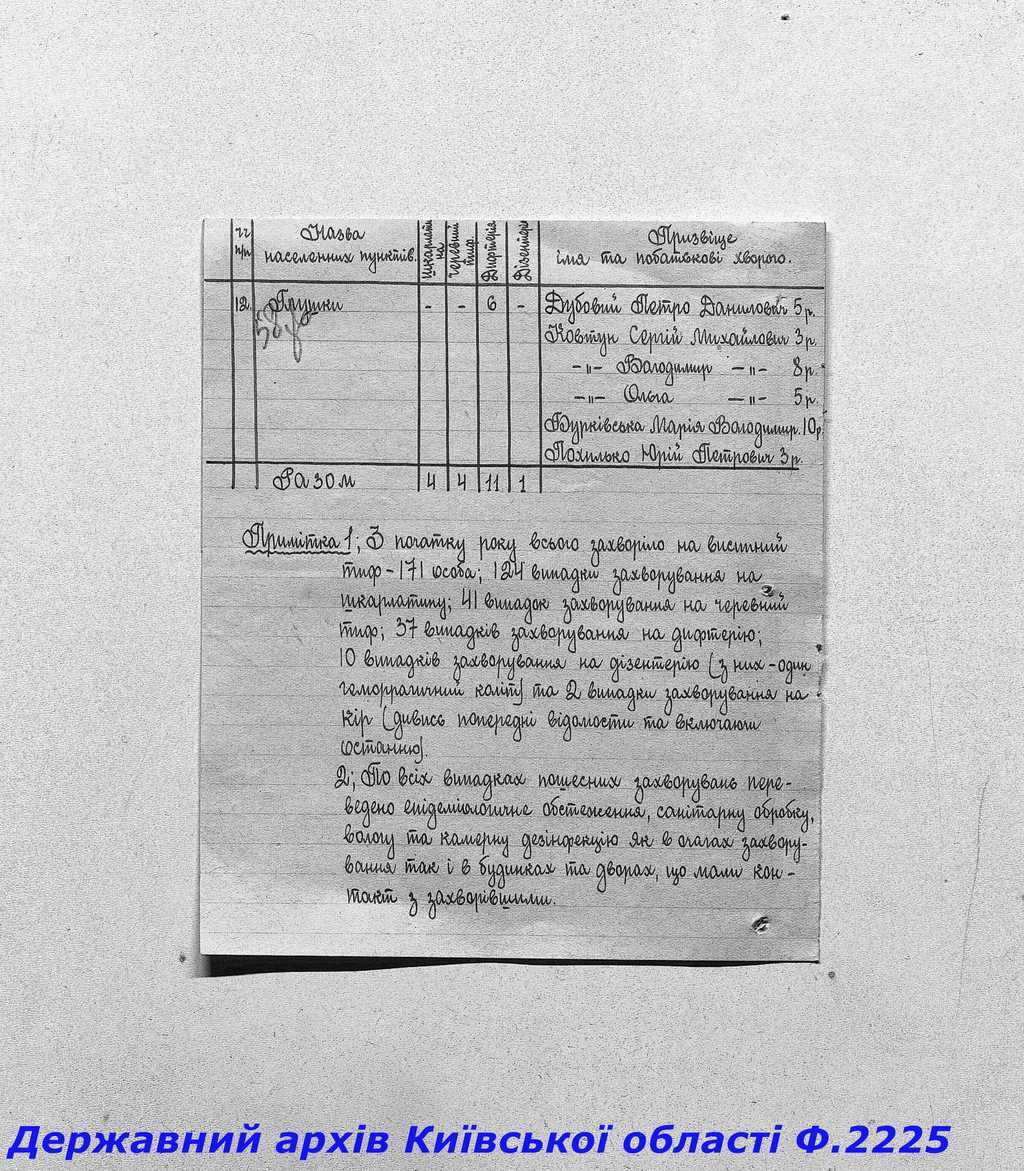 чч п/п Назва населенних пунктів. Шкарлати на Черевний тиф. Дифтерія Дізентерія Призвіще імя та побатькові хворого.
12. Грушки - - 6 - Дубовий Петро Данилович 5 р.
Ковтун Сергій Михайлович 3 р.
-"- Володимир -"- 8 р.
-"- Ольга -"- 5 р.
Бурківська Марія Володимир. 10 р.
Похилько Юрій Петрович 3 р.
Разом 4 4 11 1
Примітка 1; З початку року всього захворіло на висипний
тиф - 171 особа; 124 випадки захворування на
шкарлатину; 41 випадок захворування на черевний
тиф; 37 випадків захворування на дифтерію;
10 випадків захворування на дізентерію (з них - один
геморрагичний коліт) та 2 випадки захворування на
кір (дивись попередні відомости та включаючи
останню).
2; По всіх випадках пошесних захворувань пере-
ведено епідеміологичне обстеження, санітарну обробку,
вологу та камерну дезінфекцію як в очагах захвору-
вання так і в будинках та дворах, що мали кон-
такт з захворівшими.
Державний архів Київської області Ф.2225